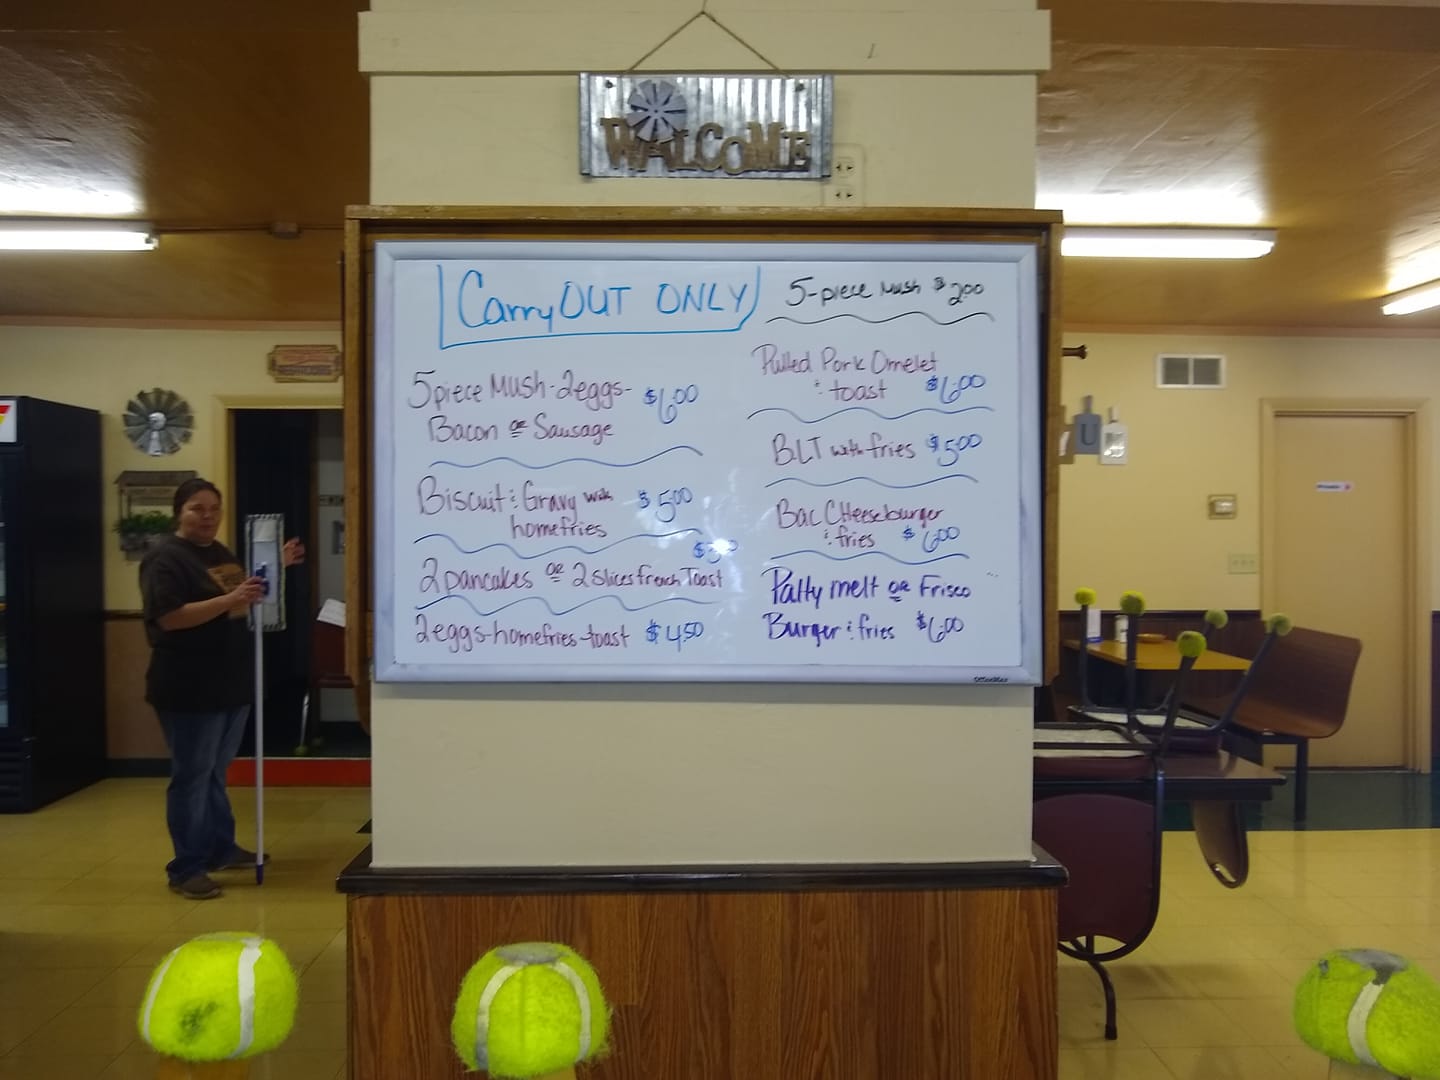 WALCOME
Carry OUT ONLY
5piece Mush-2eggs-
Bacon or Sausage
$6.00
Biscuit & Gravy with
homefries
$5.00
2pancakes or 2slices french Toast
2eggs-homefries-toast $4.50
5-piece Mush $2.00
Pulled Pork Omelet
& toast $6.00
BLT with fries $5.00
Bac CHeeseburger
& fries $6.00
Patty melt or Frisco
Burger & fries $6.00
OfficeMax